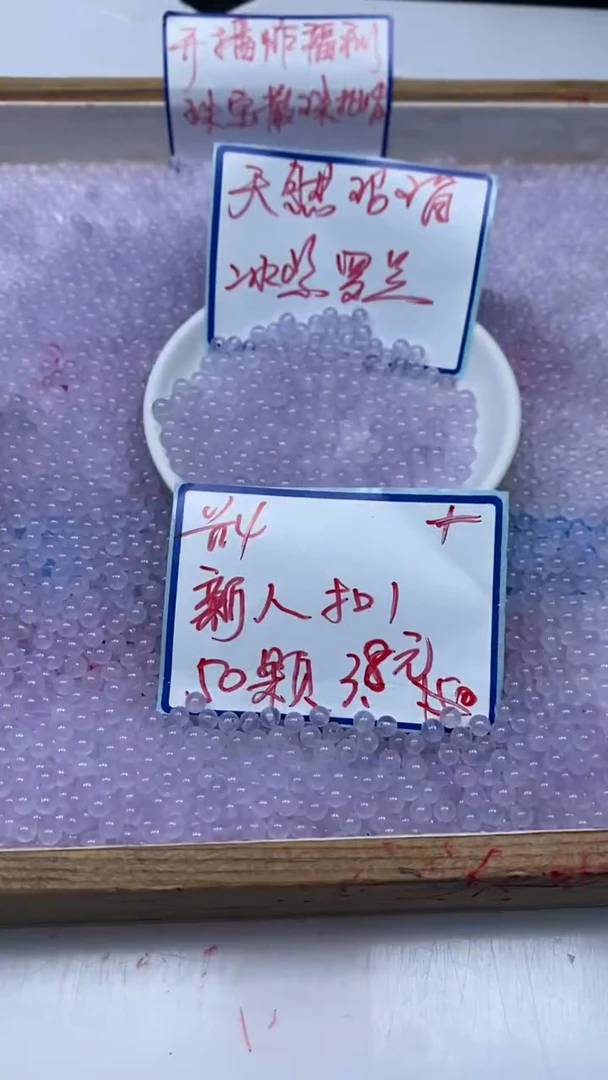 开播炸福利
珠宝散珠批发
天然玛瑙
冰紫罗兰
新人扣1
50颗 3.8元